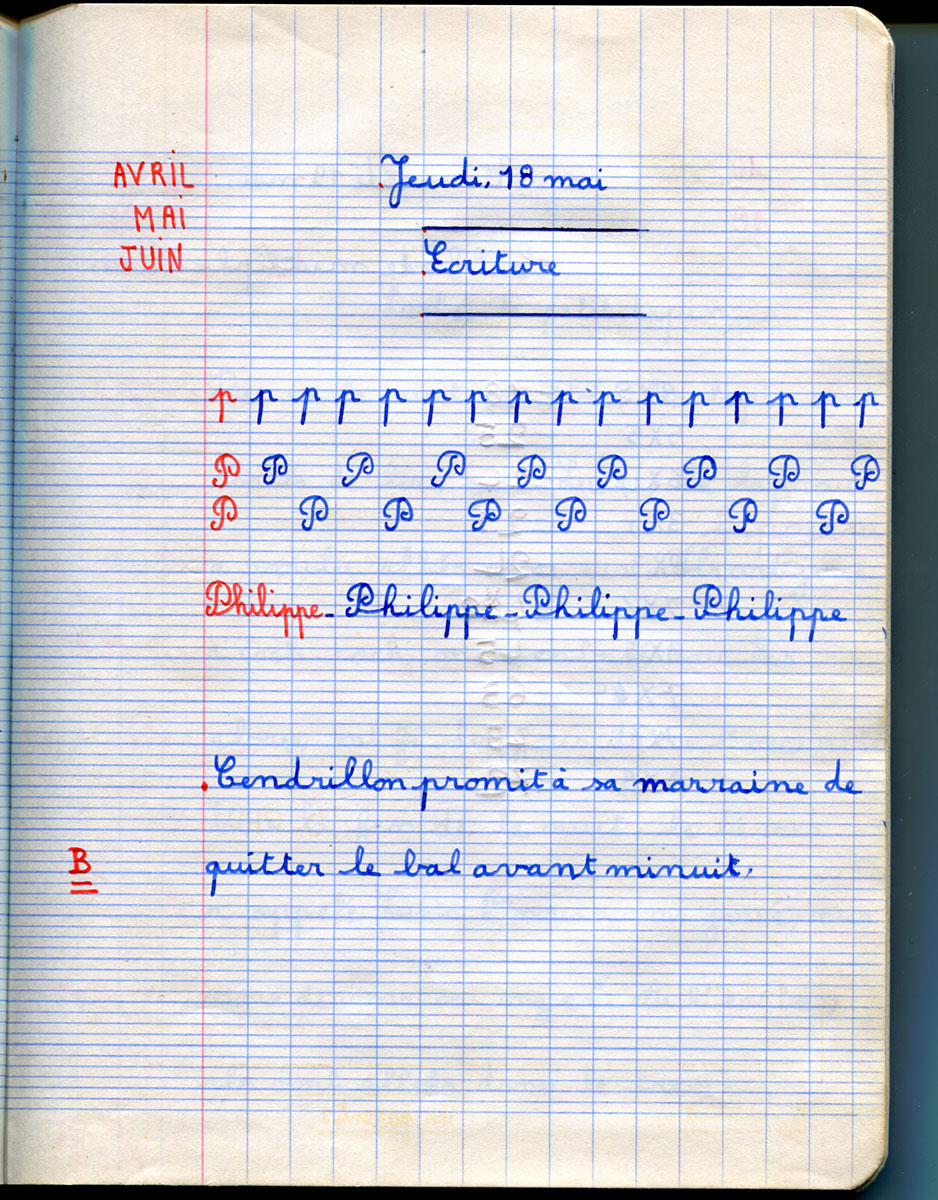 AVRIL
MAI
JUIN
Jeudi, 18 mai
Ecriture
p p p p p p p p p p p p p p p p
P P P P P P P P P
P P P P P P P P
Philippe - Philippe - Philippe - Philippe
Cendrillon promit à sa marraine de
B
quitter le bal avant minuit.